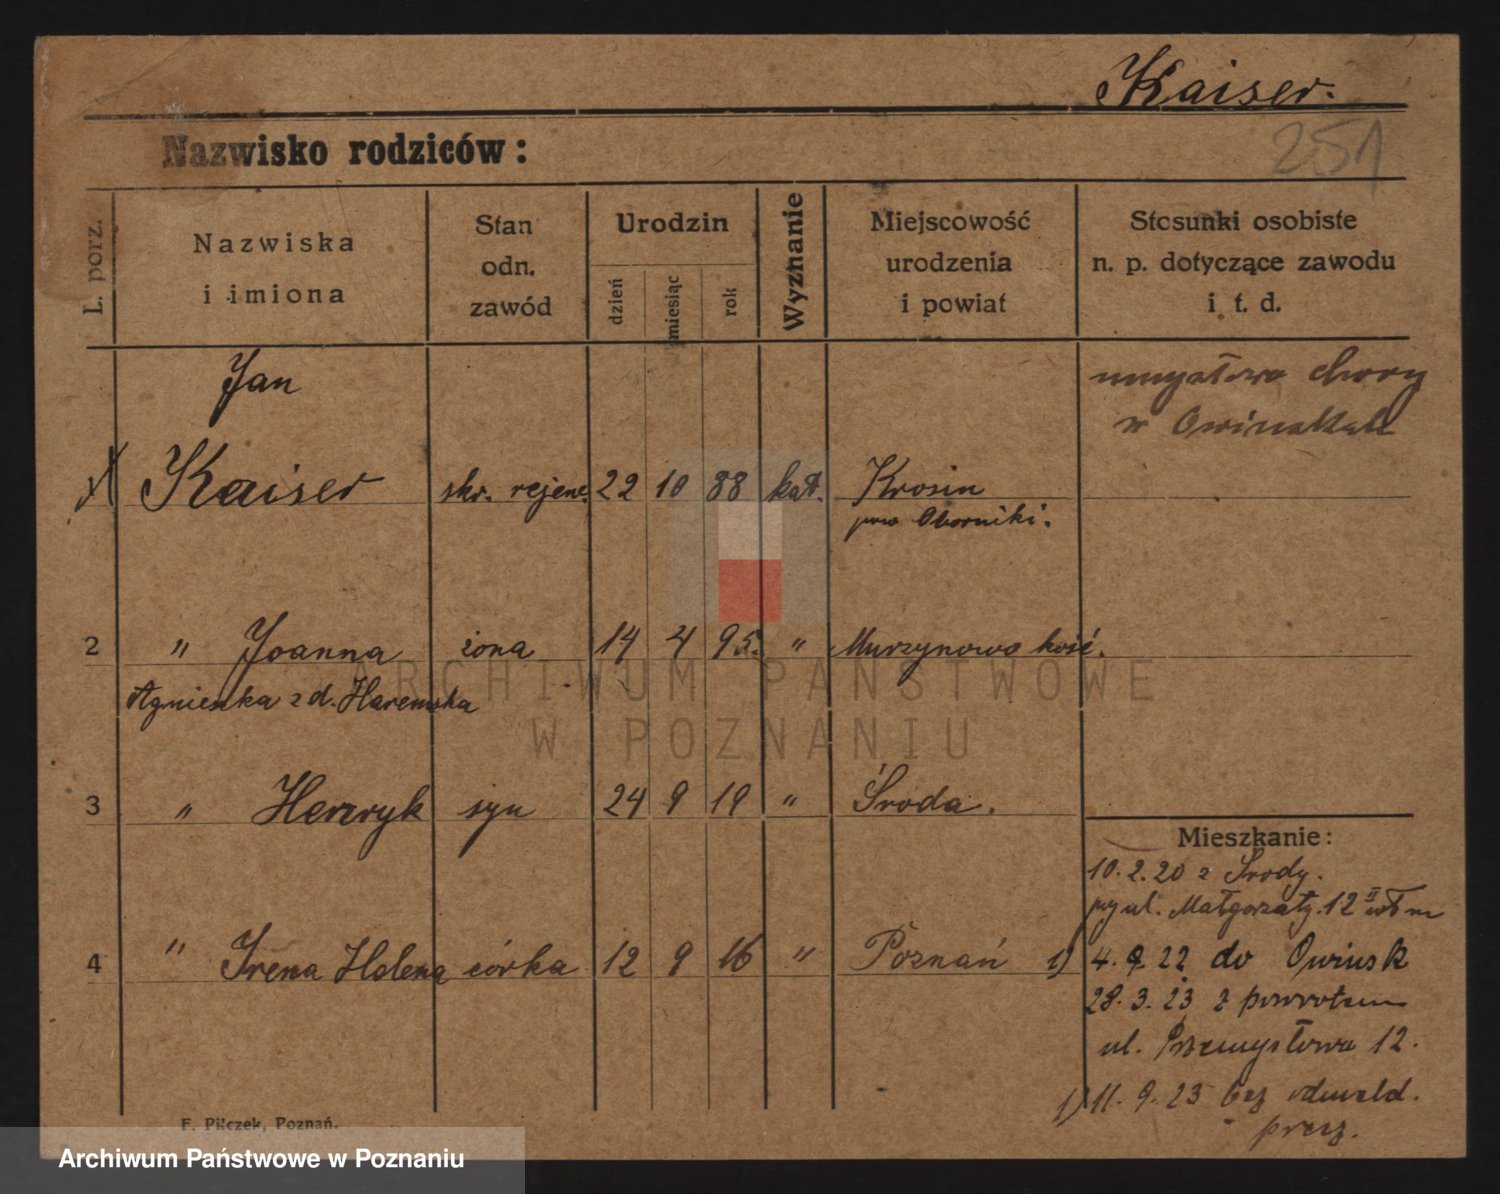 Kaiser.
251
Nazwisko rodziców:
L. porz.
Nazwiska
i imiona
Stan
odn.
zawód
Urodzin
dzień
miesiąc
rok
Wyznanie
Miejscowość
urodzenia
i powiat
Stosunki osobiste
n. p. dotyczące zawodu
i t. d.
Jan
umysłowo chory
w Owinskach
Kaiser skr. rejenc. 22 10 88 kat. Krosin
pow Oborniki.
2 " Joanna żona 14 4 95. " Murzynowo kość.
Agnieszka z d. Haremska
3 " Henryk syn 24 9 19 " Środa.
Mieszkanie:
10.2.20 z Środy.
przy ul. Małgorzaty. 12 II
4 " Irena Helena córka 12 9 16 " Poznań 1) 4.9.22 do Owinsk
28.3.23 z powrotem
ul. Przemysłowa 12.
1) 11.9.23 bez odmeld.
F. Pilczek, Poznań.
ARCHIWUM PAŃSTWOWE
W POZNANIU
Archiwum Państwowe w Poznaniu